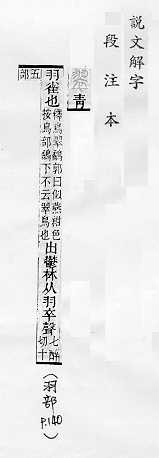 説文解字
段注本
青
羽雀也釋鳥翠鷸郭曰似燕紺色按鳥部鷸下不云翠鳥也出鬱林从羽卒聲七醉切十
五部
(羽部 P.140)